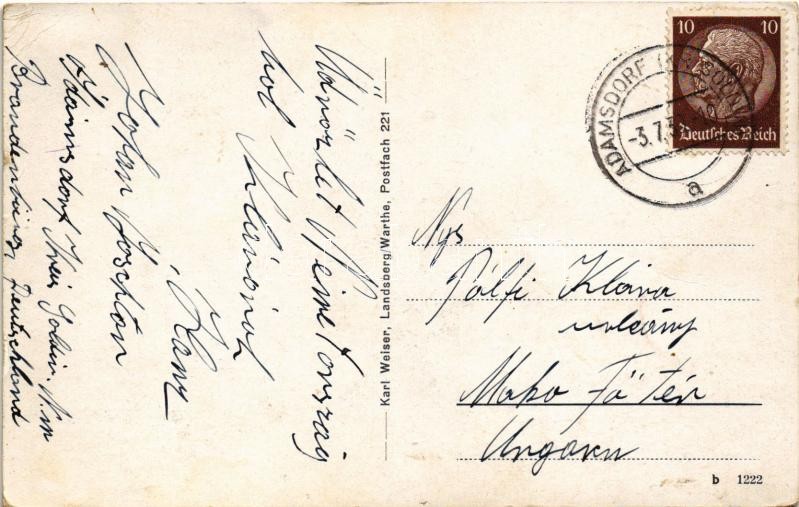 Üdvözlet Németország
ból Klárának
Zoltán
Adamsdorf Kreis Soldin N/m
Brandenburg Deutschland
Karl Weiser, Landsberg/Warthe, Postfach 221
10 10
Deutsches Reich
ADAMSDORF
-3.7.3
a
Nys
Pálfi Klára
urleány
Mako Fő tér
Ungarn
b 1222